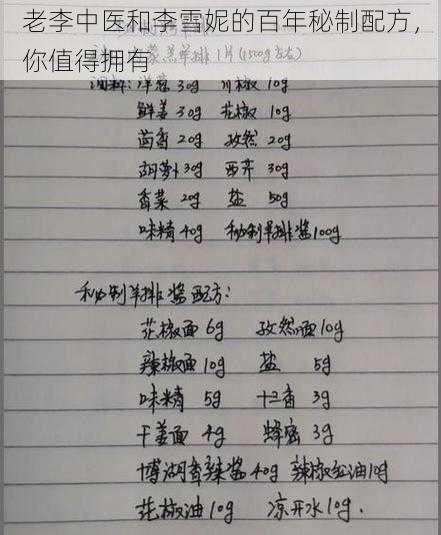 老李中医和李雪妮的百年秘制配方，
你值得拥有
羊排1片(1500g左右)
调料：洋葱 30g 川椒 10g
鲜姜 30g 花椒 10g
茴香 20g 孜然 20g
胡萝卜30g 西芹 30g
香菜 20g 盐 50g
味精 40g 秘制羊排酱100g
秘制羊排酱配方：
花椒面 6g 孜然面10g
辣椒面10g 盐 5g
味精 5g 十三香 3g
干姜面 4g 蜂蜜 3g
博湖香辣酱40g 辣椒红油10g
花椒油10g 凉开水10g.